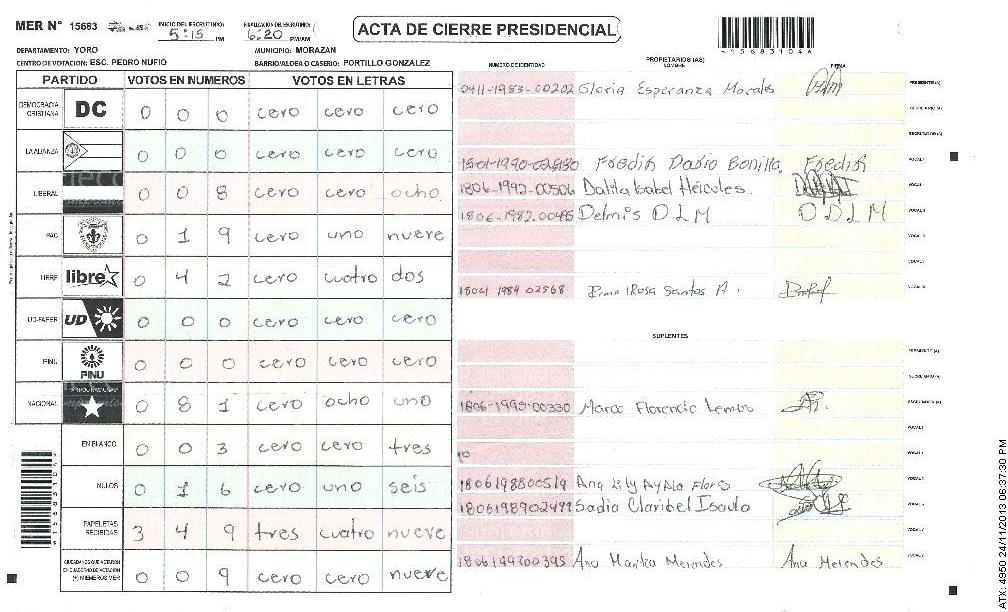 MER N° 15683 INICIO DEL ESCRUTINIO: 5:15 PM FINALIZACION DEL ESCRUTINIO: 6:20 PM/AM ACTA DE CIERRE PRESIDENCIAL
DEPARTAMENTO: YORO MUNICIPIO: MORAZAN
CENTRO DE VOTACION: ESC. PEDRO NUFIO BARRIO/ALDEA O CASERIO: PORTILLO GONZALEZ
PARTIDO VOTOS EN NUMEROS VOTOS EN LETRAS
DEMOCRACIA CRISTIANA DC 0 0 0 cero cero cero
LA ALIANZA 0 0 0 cero cero cero
LIBERAL 0 0 8 cero cero ocho
PAC 0 1 9 cero uno nueve
LIBRE libre 0 4 2 cero cuatro dos
UD-FAPER UD 0 0 0 cero cero cero
PINU PINU 0 0 0 cero cero cero
NACIONAL 0 8 1 cero ocho uno
EN BLANCO 0 0 3 cero cero tres
NULOS 0 1 6 cero uno seis
PAPELETAS RECIBIDAS 3 4 9 tres cuatro nueve
CIUDADANOS QUE VOTARON EN CUADERNO DE VOTACION (+) MIEMBROS MER 0 0 9 cero cero nueve
PROPIETARIOS (AS)
NUMERO DE IDENTIDAD NOMBRE FIRMA
0411-1983-00202 Gloria Esperanza Morales PRESIDENTE (A)
SECRETARIO (A)
ESCRUTADOR (A)
1501-1990-02980 Fredin Dario Bonilla Fredin VOCAL I
1806-1992-00506 Dalila Isabel Hércules
1806-1982-00485 Delmis O L M O D L M
1804 1984 02868 Rosa Santos A.
SUPLENTES
PRESIDENTE (A)
SECRETARIO (A)
1806-1995-00330 Marco Florencio ESCRUTADOR (A)
1806198800519 Ana Ayala Flores
1806198902499 Sadia Claribel
1806199200395 Ana Maritza Merendes Ana Merendes
156831046
ATX: 4950 24/11/2013 06:37:30 PM